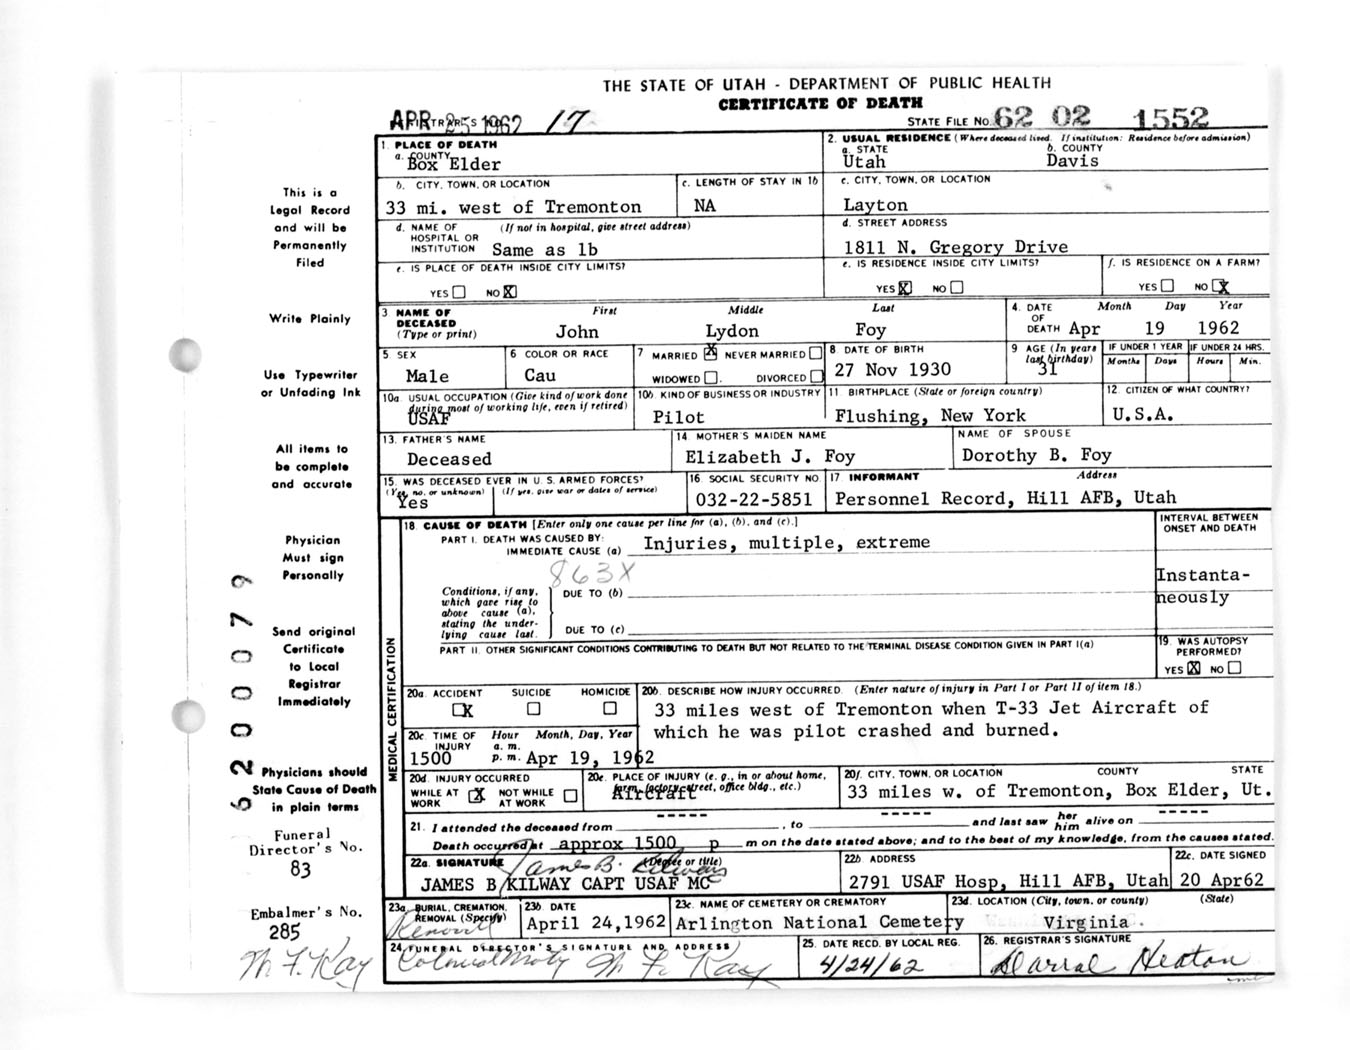 THE STATE OF UTAH - DEPARTMENT OF PUBLIC HEALTH
CERTIFICATE OF DEATH
APR 25 1962 17
STATE FILE NO. 62 02 1552
1. PLACE OF DEATH
a. COUNTY
Box Elder
2. USUAL RESIDENCE (Where deceased lived. If institution: Residence before admission)
a. STATE b. COUNTY
Utah Davis
b. CITY, TOWN, OR LOCATION
33 mi. west of Tremonton
c. LENGTH OF STAY IN 1b
NA
c. CITY, TOWN, OR LOCATION
Layton
d. NAME OF HOSPITAL OR INSTITUTION (If not in hospital, give street address)
Same as 1b
d. STREET ADDRESS
1811 N. Gregory Drive
e. IS PLACE OF DEATH INSIDE CITY LIMITS?
YES NO X
e. IS RESIDENCE INSIDE CITY LIMITS?
YES X NO
f. IS RESIDENCE ON A FARM?
YES NO X
3 NAME OF DECEASED (Type or print)
First Middle Last
John Lydon Foy
4. DATE OF DEATH Month Day Year
Apr 19 1962
5 SEX
Male
6 COLOR OR RACE
Cau
7 MARRIED X NEVER MARRIED
WIDOWED DIVORCED
8 DATE OF BIRTH
27 Nov 1930
9 AGE (In years last birthday)
31
IF UNDER 1 YEAR
Months Days
IF UNDER 24 HRS.
Hours Min.
10a. USUAL OCCUPATION (Give kind of work done during most of working life, even if retired)
USAF
10b. KIND OF BUSINESS OR INDUSTRY
Pilot
11 BIRTHPLACE (State or foreign country)
Flushing, New York
12 CITIZEN OF WHAT COUNTRY?
U.S.A.
13. FATHER'S NAME
Deceased
14 MOTHER'S MAIDEN NAME
Elizabeth J. Foy
NAME OF SPOUSE
Dorothy B. Foy
15. WAS DECEASED EVER IN U. S. ARMED FORCES?
(Yes, no, or unknown) (If yes, give war or dates of service)
Yes
16 SOCIAL SECURITY NO.
032-22-5851
17. INFORMANT Address
Personnel Record, Hill AFB, Utah
18. CAUSE OF DEATH [Enter only one cause per line for (a), (b), and (c).]
PART I. DEATH WAS CAUSED BY:
IMMEDIATE CAUSE (a) Injuries, multiple, extreme
863X
Conditions, if any, which gave rise to above cause (a), stating the underlying cause last.
DUE TO (b)
DUE TO (c)
INTERVAL BETWEEN ONSET AND DEATH
Instanta-
neously
PART II. OTHER SIGNIFICANT CONDITIONS CONTRIBUTING TO DEATH BUT NOT RELATED TO THE TERMINAL DISEASE CONDITION GIVEN IN PART I(a)
19. WAS AUTOPSY PERFORMED?
YES X NO
MEDICAL CERTIFICATION
20a. ACCIDENT SUICIDE HOMICIDE
X
20b. DESCRIBE HOW INJURY OCCURRED. (Enter nature of injury in Part I or Part II of item 18.)
33 miles west of Tremonton when T-33 Jet Aircraft of
which he was pilot crashed and burned.
20c. TIME OF INJURY Hour Month, Day, Year
a. m.
p. m.
1500 Apr 19, 1962
20d. INJURY OCCURRED
WHILE AT WORK X NOT WHILE AT WORK
20e. PLACE OF INJURY (e. g., in or about home, farm, factory, street, office bldg., etc.)
Aircraft
20f. CITY, TOWN, OR LOCATION COUNTY STATE
33 miles w. of Tremonton, Box Elder, Ut.
21. I attended the deceased from -----, to ----- and last saw her him alive on -----
Death occurred at approx 1500 p m on the date stated above; and to the best of my knowledge, from the causes stated.
22a. SIGNATURE (Degree or title)
James B. Kilway
JAMES B KILWAY CAPT USAF MC
22b. ADDRESS
2791 USAF Hosp, Hill AFB, Utah
22c. DATE SIGNED
20 Apr62
23a. BURIAL, CREMATION, REMOVAL (Specify)
Removal
23b. DATE
April 24,1962
23c. NAME OF CEMETERY OR CREMATORY
Arlington National Cemetery
23d. LOCATION (City, town, or county) (State)
Virginia.
24. FUNERAL DIRECTOR'S SIGNATURE AND ADDRESS
Colonial Moty M F. Kay
25. DATE RECD. BY LOCAL REG.
4/24/62
26. REGISTRAR'S SIGNATURE
Darral Heaton
This is a
Legal Record
and will be
Permanently
Filed
Write Plainly
Use Typewriter
or Unfading Ink
All items to
be complete
and accurate
Physician
Must sign
Personally
Send original
Certificate
to Local
Registrar
Immediately
Physicians should
State Cause of Death
in plain terms
Funeral
Director's No.
83
Embalmer's No.
285
M F. Kay